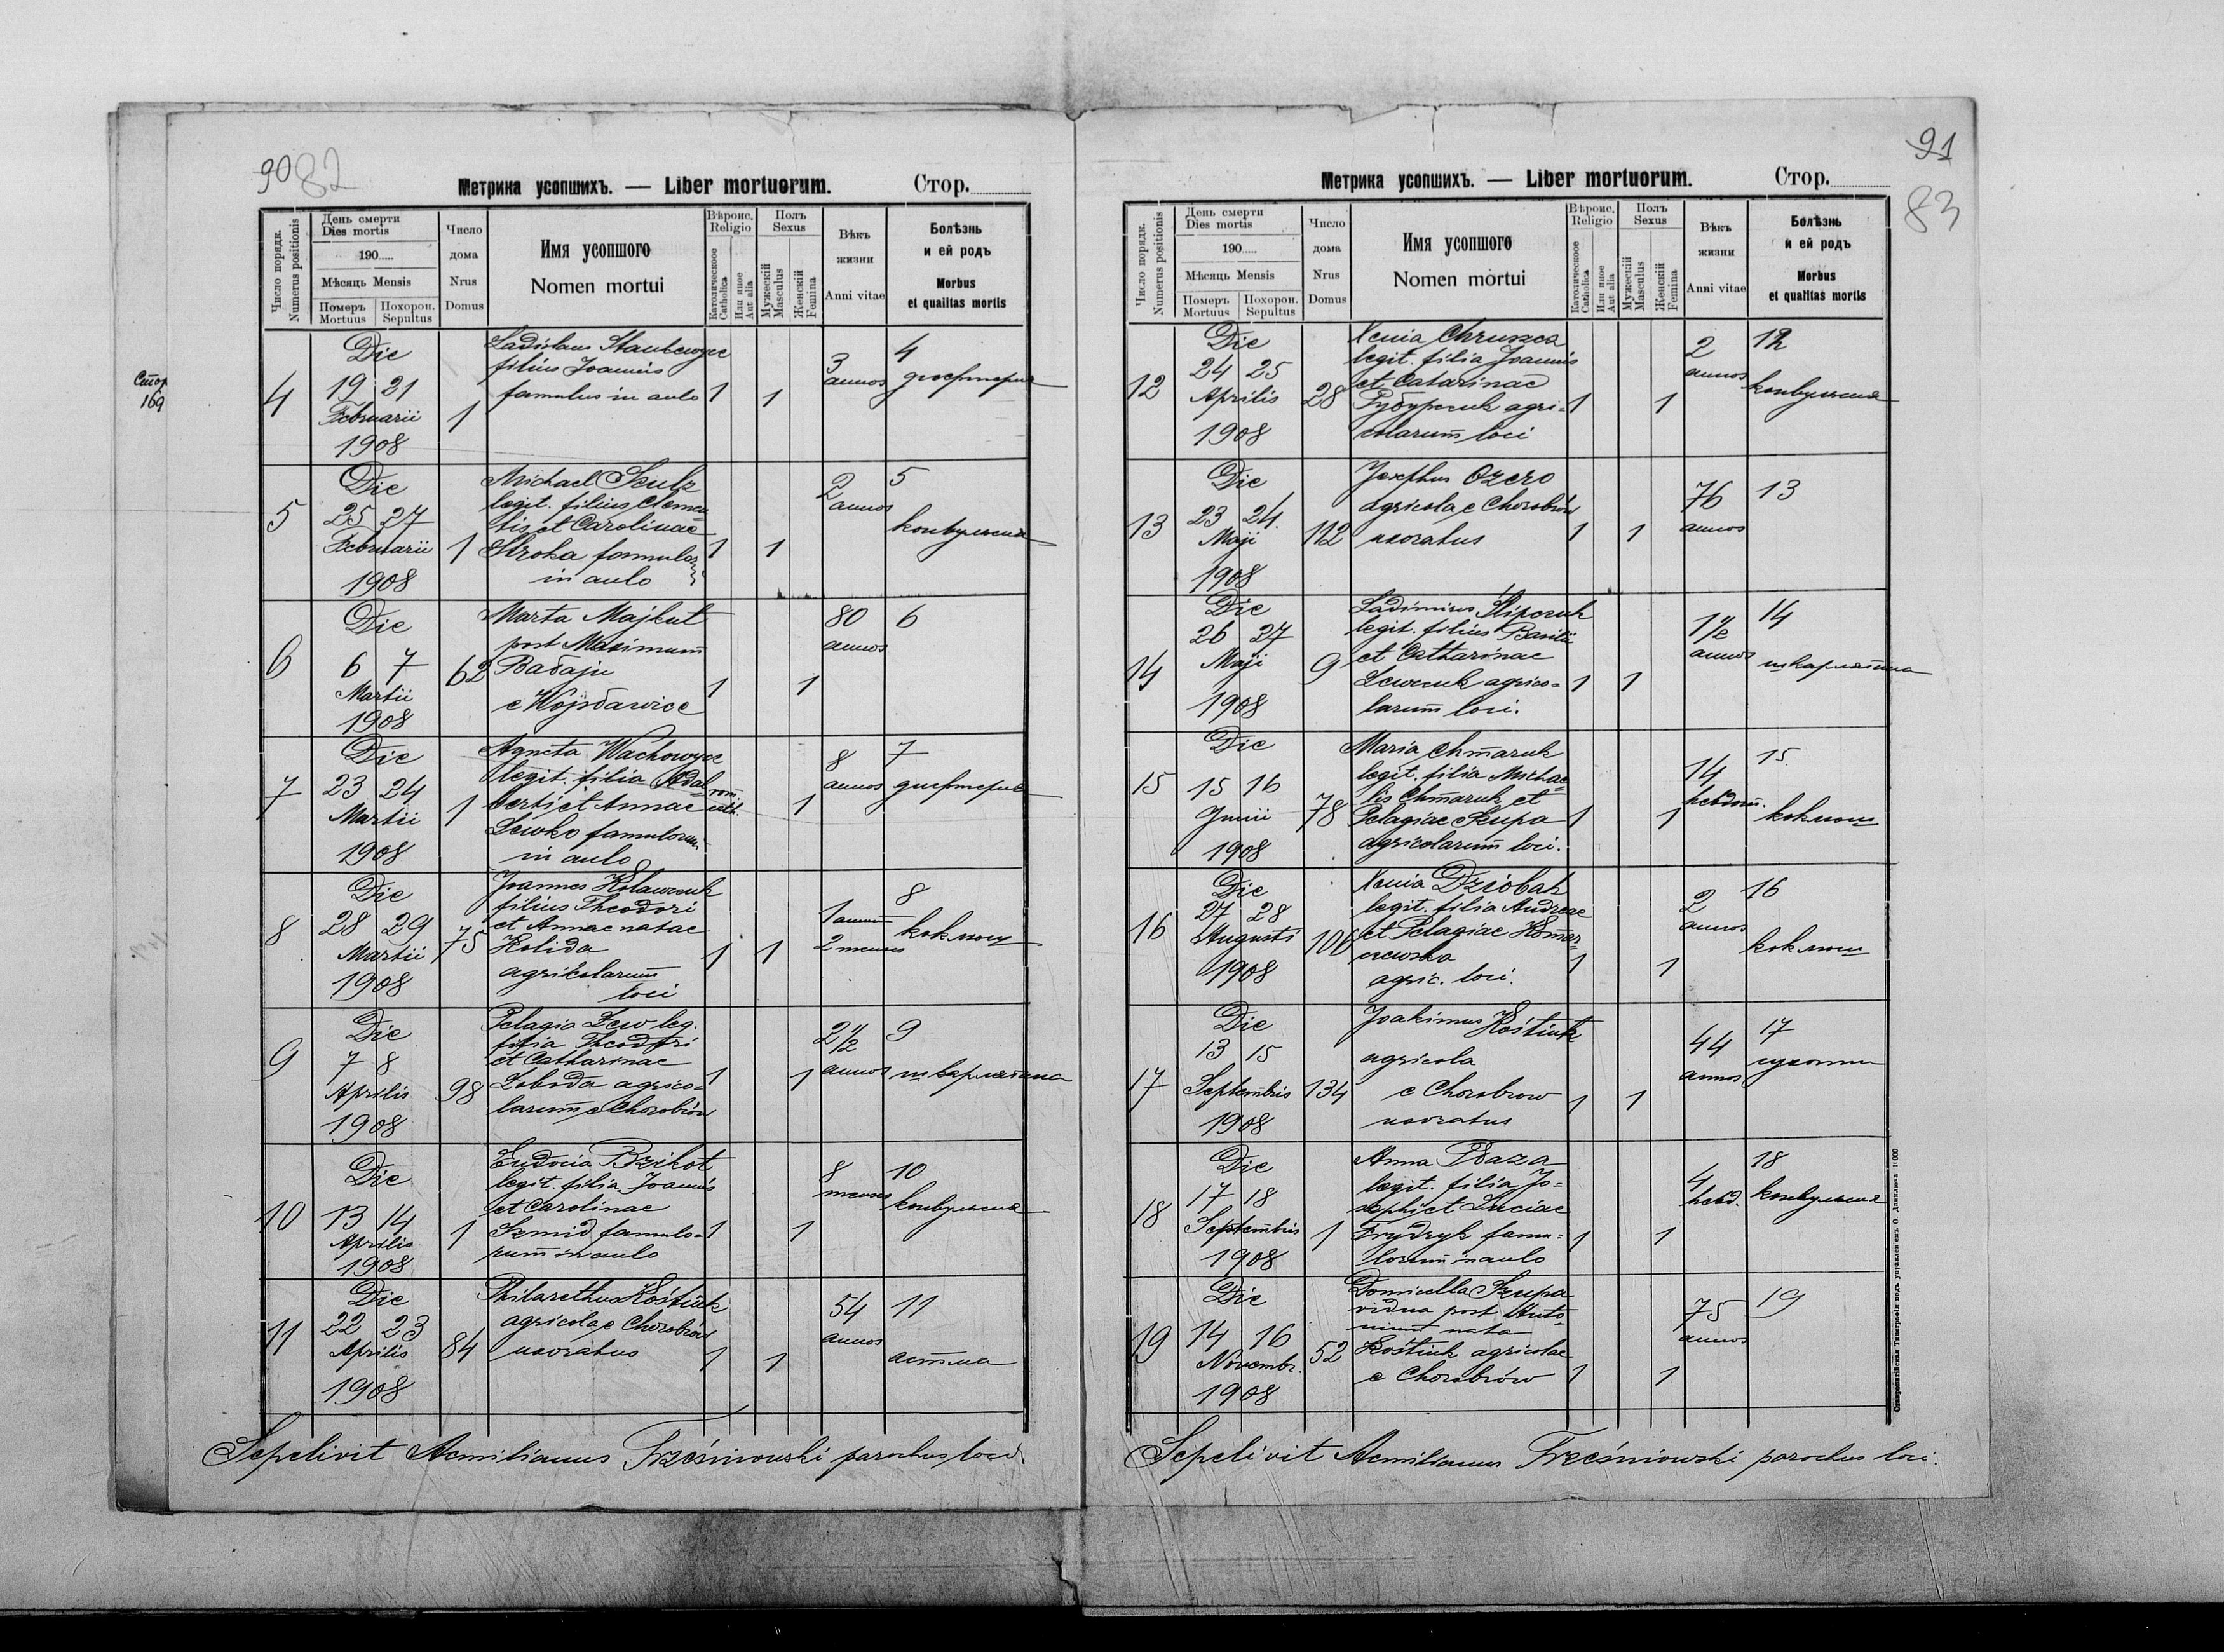 90 82
Метрика усопшихъ. — Liber mortuorum. Стор.
Число порядк. Numerus positionis
День смерти
Dies mortis
190.....
Мѣсяць Mensis
Померъ Mortuus
Похорон. Sepultus
Число дома Nrus Domus
Имя усопшого
Nomen mortui
Вѣроис. Religio
Католическоое Catholica
Или иное Aut alia
Полъ Sexus
Мужескій Masculus
Женскій Femina
Вѣкъ жизни Anni vitae
Болѣзнь и ей родъ
Morbus et qualitas mortis
Стор 169
4
Die
19 21
Februarii
1908
1
Ladislaus
filius Joannis
famulus in aulo
1 1
3 annos
4
дифтерия
5
Die
25 27
Februarii
1908
1
Michael
legit. filius Clemen=
tis et Carolinae
Stroka famulor
in aulo
1 1
2 annos
5
конвульсия
6
Die
6 7
Martii
1908
62
Marta Majkut
post Maximum
e
1 1
80 annos
6
7
Die
23 24
Martii
1908
1
Agneta Wachowycz
legit. filia Adal
berti et Annae
Lewko famulorum
in aulo
1
8 annos
7
дифтерия
8
Die
28 29
Martii
1908
75
Joannes
filius Theodori
et Annae natae
Kolida
agrikolarum
loci
1 1
1 annum
2 menses
8
коклюш
9
Die
7 8
Aprilis
1908
98
Pelagia Lew leg.
filia Theodori
et Catharinae
Łoboda agrico=
larum e Chorobrów
1 1
2 1/2 annos
9
шкарлятина
10
Die
13 14
Aprilis
1908
1
Eudocia
legit. filia Joannis
et Carolinae
Szmid famulo=
rum in aulo
1 1
8 menses
10
конвульсия
11
Die
22 23
Aprilis
1908
84
Philarethus Kostiuk
agricola e Chorobrów
uxoratus
1 1
54 annos
11
астма
Sepelivit Aemilianus Trześniowski parochus loci
91
83
Метрика усопшихъ. — Liber mortuorum. Стор.
Число порядк. Numerus positionis
День смерти
Dies mortis
190.....
Мѣсяць Mensis
Померъ Mortuus
Похорон. Sepultus
Число дома Nrus Domus
Имя усопшого
Nomen mortui
Вѣроис. Religio
Католическоое Catholica
Или иное Aut alia
Полъ Sexus
Мужескій Masculus
Женскій Femina
Вѣкъ жизни Anni vitae
Болѣзнь и ей родъ
Morbus et qualitas mortis
12
Die
24 25
Aprilis
1908
28
Xenia
legit. filia Joannis
et Catarinae
agri=
colarum loci
1 1
2 annos
12
конвульсия
13
Die
23 24
Maji
1908
112
Josephus Ozero
agricola e Chorobrów
uxoratus
1 1
76 annos
13
14
Die
26 27
Maji
1908
9
Ladimirus
legit. filius Basilii
et Catharinae
agrico=
larum loci.
1 1
1 1/2 annos
14
шкарлятина
15
Die
15 16
Junii
1908
78
Maria Chmaruk
legit. filia Michae=
lis Chmaruk et
Pelagiae
agricolarum loci.
1 1
14 hebdom.
15
коклюш
16
Die
27 28
Augusti
1908
106
Xenia Dziobak
legit. filia Andreae
et Pelagiae
agric. loci.
1 1
2 annos
16
коклюш
17
Die
13 15
Septembris
1908
134
Joakimus Kostiuk
agricola
e Chorobrow
uxoratus
1 1
44 annos
17
сухоти
18
Die
17 18
Septembris
1908
1
Anna
legit. filia Jo=
sephi et Luciae
Frydryk famu=
lorum in aulo
1 1
4 hebd.
18
конвульсия
19
Die
14 16
Novembr.
1908
52
Domicella
vidua post Anto=
nium nata
Kostiuk agricolae
e Chorobrów
1 1
75 annos
19
Sepelivit Aemilianus Trześniowski parochus loci.